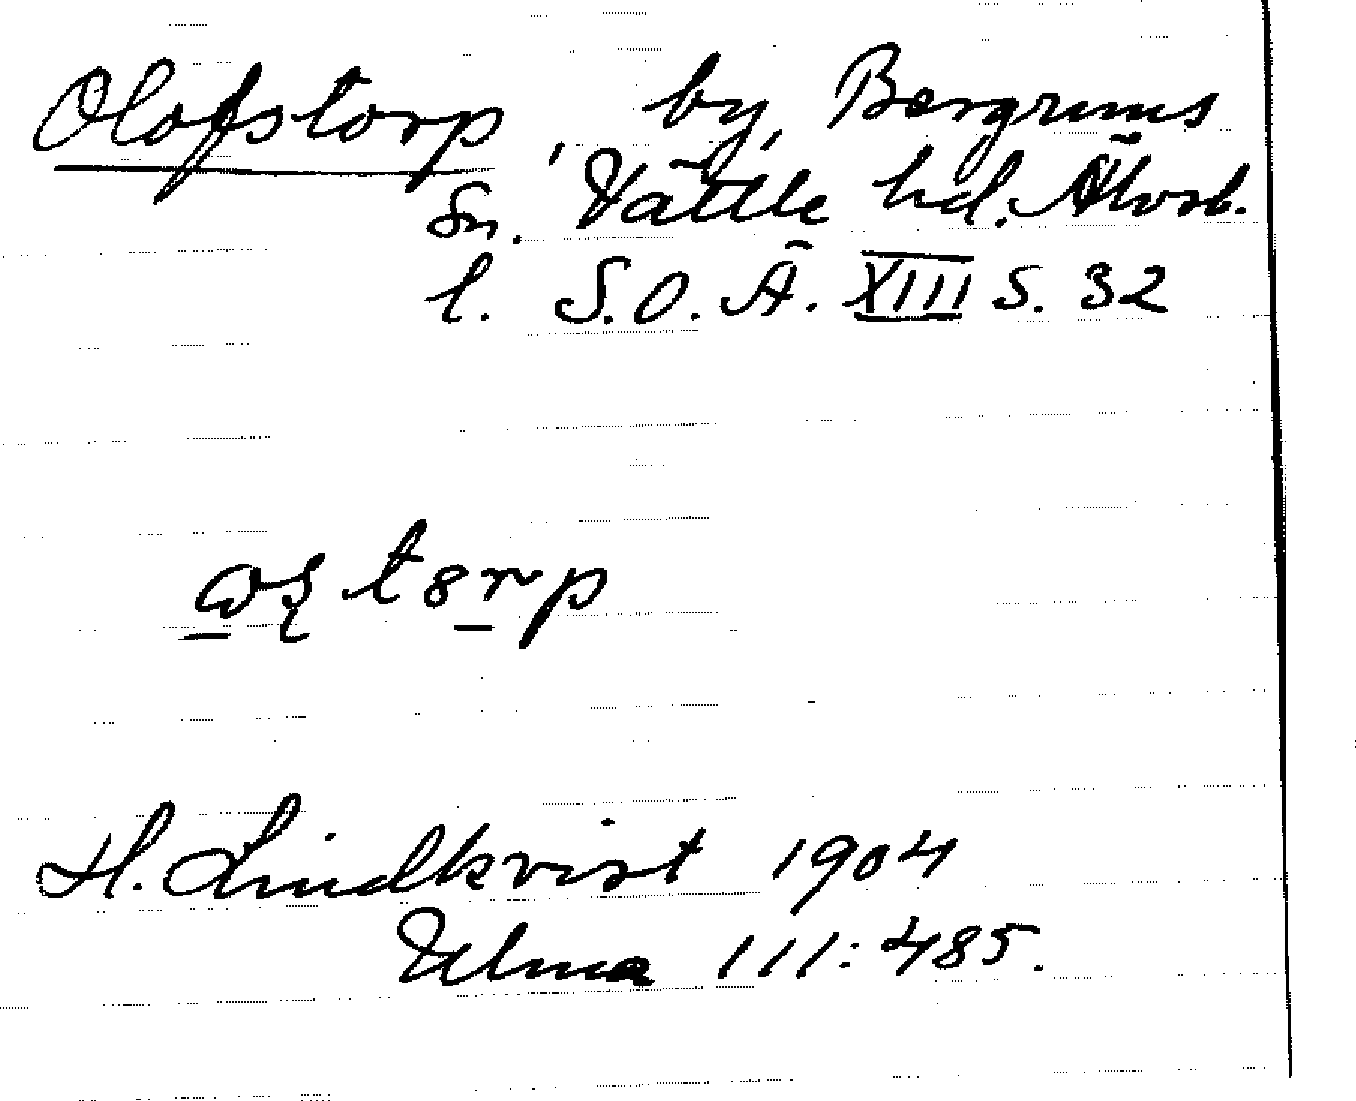 Olofstorp, by, Bergums
Sn. Vättle hd. Älvsb.
l. S.O.Ä. XIII S. 32
H. Lindkvist 1904
Ulma 111:485.